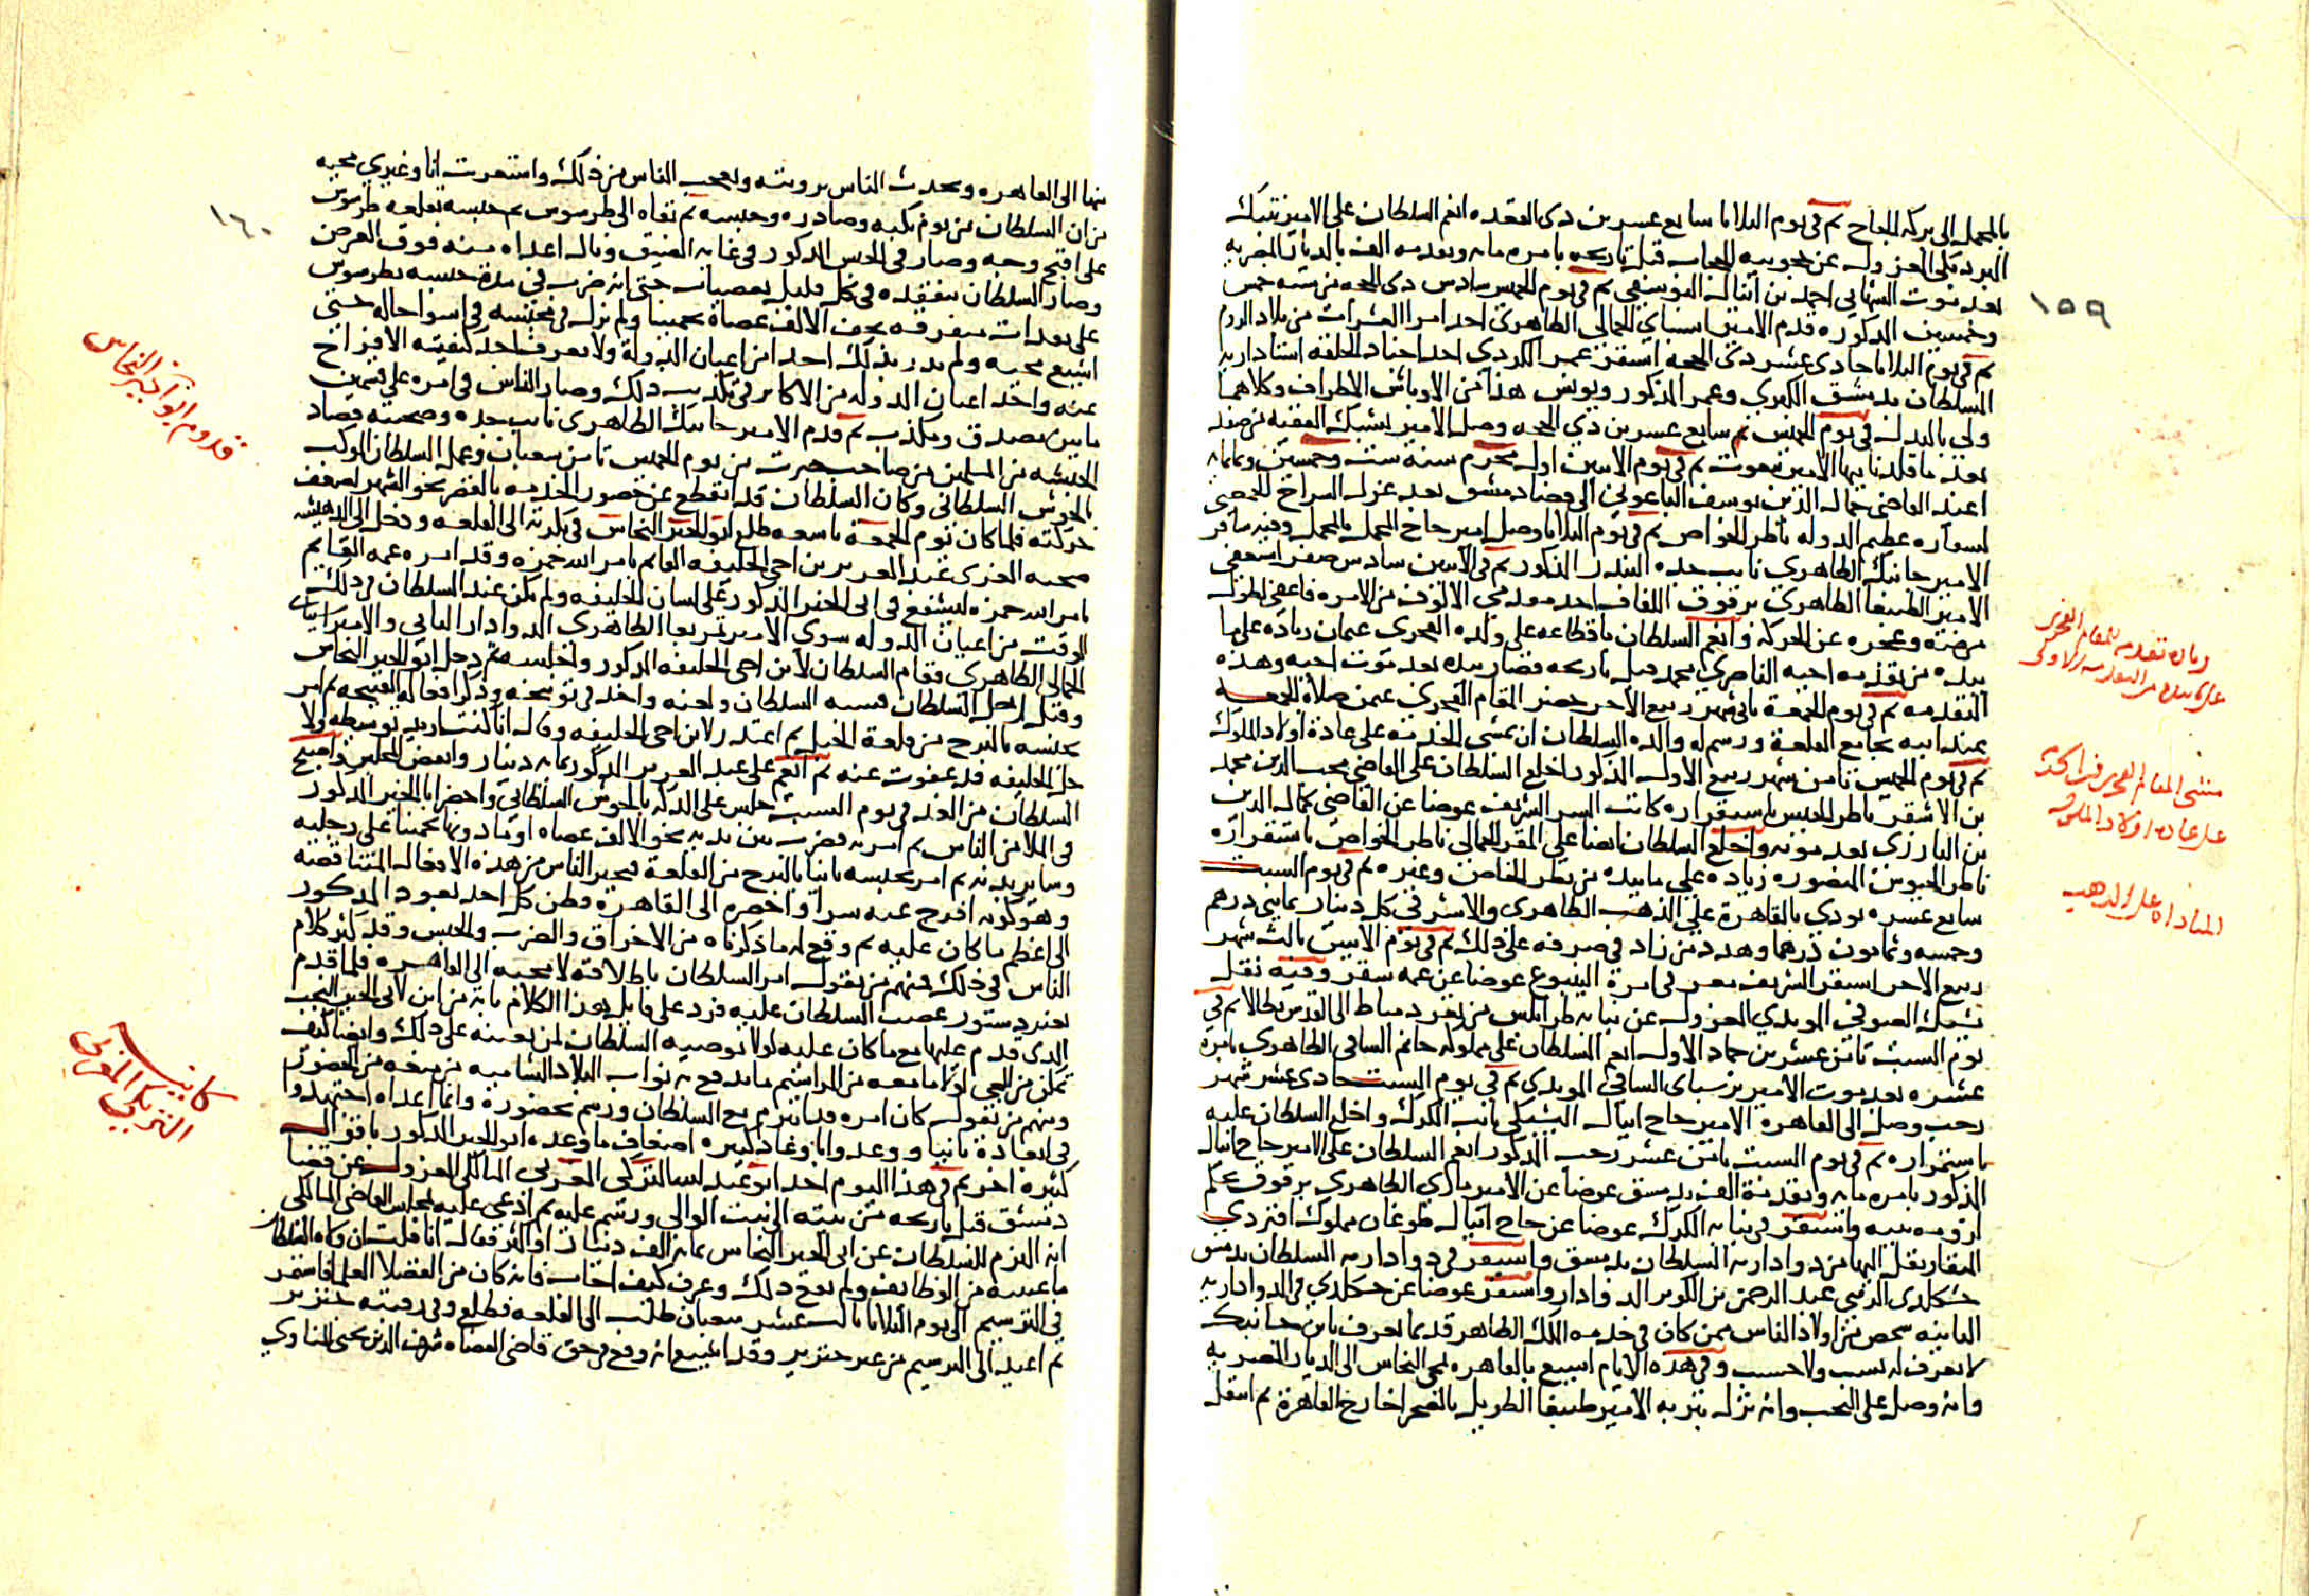 بالمحمل الى بركه الحجاج ثم فى يوم الثلاثا سابع عشرين ذى القعده انعم السلطان على الامير تنبك
البردبكى المعزول عن حجوبيه الحجاب قبل تاريخه بامره مايه وتقدمه الف بالديار المصريه
بعد موت الشهابي احمد بن اينال اليوسفي ثم فى يوم الخميس سادس ذى الحجه من سنه خمس
وخمسين المذكوره قدم الامير اسنباي الجمالي الظاهري احد امرا العشرات من بلاد الروم
ثم فى يوم الثلاثا حادى عشر ذى الحجه استقر عمر الكردي احد اجناد الحلقه استادار
السلطان بدمشق الكبرى وعمر المذكور ويونس هذا من الاوباش الاطراف وكلاهما
ولي بالبدل فى يوم الخميس سابع عشرين ذي الحجه وصل الامير يشبك الفقيه من صفد
بعد ما قلد نايبها الامير بيغوت ثم فى يوم الاثنين اول محرم سنه ست وخمسين وثمانمايه
اعيد القاضى جمال الدين يوسف الباعوني الى قضا دمشق بعد عزل السراج الحمصى
بسفاره عظيم الدوله ناظر الخواص ثم فى يوم الثلاثا وصل امير حاج المحمل بالمحمل وفيه سافر
الامير جانبك الظاهري نايب جده البندر المذكور ثم فى الاثنين سادس صفر استعفى
الامير الطنبغا الظاهري برقوق اللفاف احد مقدمي الالوف من الامره فاعفى لطول
مرضه وعجزه عن الحركه وانعم السلطان باقطاعه على ولده الفخرى عثمان زياده على ما
بيده من تقدمه اخيه الناصري محمد قبل تاريخه فصار بيده بعد موت اخيه وهذه
التقدمه ثم فى يوم الجمعة ثانى شهر ربيع الاخر حضر المقام الفخري عثمن صلاة الجمعه
عند ابيه بجامع القلعة ورسم له والده السلطان ان يمشى الخدمه على عادة اولاد الملوك
ثم فى يوم الخميس ثامن شهر ربيع الاول المذكور اخلع السلطان على القاضي محب الدين محمد
بن الاشقر ناظر الجيش باستقراره كاتب السر الشريف عوضا عن القاضي كمال الدين
بن البارزى بعد موته واخلع السلطان ايضا على المقر الجمالي ناظر الخواص باستقراره
ناظر الجيوش المنصوره زياده علي ما بيده من نظر الخاص وغيره ثم فى يوم السبت
سابع عشره نودي بالقاهرة علي الذهب الظاهري والاشرفي كل دينار بمايتي درهم
وخمسه وثمانون درهما وهدد من زاد فى صرفه على ذلك ثم فى يوم الاثنين ثالث شهر
ربيع الاخر استقر الشريف معزى فى امرة الينبوع عوضا عن عمه سقر وفيه نقل
يشبك الصوفى المويدي المعزول عن نيابه طرابلس من ثغر دمياط الى القدس بطالا ثم فى
يوم السبت ثامن عشرين جماد الاول انعم السلطان على مملوكه جانم الساقى الظاهرى بامرة
عشره بعد موت الامير برسباى الساقى المويدى ثم فى يوم السبت حادى عشر شهر
رجب وصل الى القاهرة الامير حاج اينال اليشبكى نايب الكرك واخلع السلطان عليه
باستمراره ثم فى يوم السبت ثامن عشر رجب المذكور انعم السلطان على الامير حاج اينال
المذكور بامره مايه وتقدمة الف بدمشق عوضا عن الامير مازي الظاهري برقوق بحكم
لزومه بيته واستقر فى نيابه الكرك عوضا عن حاج اينال طوغان مملوك اقبردي
المنقار نقل اليها من دوادارىه السلطان بدمشق واستقر فى دوادارىه السلطان بدمشق
خشكلدى الزينى عبد الرحمن بن الكويز الدوادار واستقر عوضا عن خشكلدي فى الدوادارىه
الثانيه شخص من اولاد الناس ممن كان فى خدمه الملك الظاهر قديما يعرف بابن جانبك
لا يعرف له نسب ولا حسب وفى هذه الايام اشيع بالقاهره بمجي النحاس الى الديار المصريه
وانه وصل على النجب وانه نزل بتربه الامير طيبغا الطويل بالصحرا خارج القاهرة ثم انتقل
١٥٩
زيادة تقدمه للمقام الفخري
على ما بيده من التقدمه الاولى
مشى المقام الفخري فى الخدمة
على عادة اولاد الملوك
المناداه على الذهب
منها الى القاهره وتحدث الناس برويته وتعجب الناس من ذلك واستغربت انا وغيري مجيه
من ان السلطان من يوم نكبه وصادره وحبسه ثم نفاه الى طرسوس ثم حبسه بقلعه طرسوس
على اقبح وجه وصار فى الحبس المذكور فى غايه الضيق ونال اعداه منه فوق الغرض
وصار السلطان يتفقده فى كل قليل بعصيات حتى انه ضرب فى مدة حبسه بطرسوس
على مرات متفرقه نحو الالف عصاة تخمينا ولم يزل فى محبسه فى اسوا حال حتى
اشيع مجيه ولم يدر بذلك احد من اعيان الدولة ولا يعرف احد كيفيه الافراج
عنه واخذ اعيان الدوله من الاكابر فى تكذيب ذلك وصار الناس فى امره على قسمين
ما بين مصدق ومكذب ثم قدم الامير جانبك الظاهرى نايب جده وصحبته قصاد
الحبشه من المسلمين من صاحب جبرت من يوم الخميس ثامن شعبان وعمل السلطان الموكب
بالحوش السلطانى وكان السلطان قد انقطع عن حضور الخدمه بالقصر نحو الشهر لضعف
حركته فلما كان يوم الجمعة تاسعه طلع ابو الخير النحاس فى بكرته الى القلعه ودخل الى الدهيشه
صحبه العزى عبد العزيز بن اخي الخليفه القايم بامر الله حمزه وقد امره عمه القايم
بامر الله حمزه ليشفع فى ابى الخير المذكور على لسان الخليفه ولم يكن عند السلطان فى ذلك
الوقت من اعيان الدوله سوى الامير تمربغا الظاهري الدوادار الثاني والامير اسنباى
الجمالى الظاهري فقام السلطان لابن اخي الخليفه المذكور واجلسه ثم دخل ابو الخير النحاس
وقبل رجل السلطان فسبه السلطان ولعنه واخذ فى توبيخه وذكر افعاله القبيحه ثم امر
بحبسه بالبرج من قلعة الجبل ثم اعتذر لابن اخي الخليفه وقال انا كنت اريد توسيطه ولاجل
الخليفه قد عفوت عنه ثم انعم على عبد العزيز المذكور بمايه دينار وانفض المجلس واصبح
السلطان من الغد فى يوم السبت جلس على الدكه بالحوش السلطاني واحضر ابا الخير المذكور
فى الملا من الناس ثم امر به فضرب بين يديه نحو الالف عصاه او ما دونها تخمينا على رجليه
وساير بدنه ثم امر بحبسه ثانيا بالبرج من القلعة فتحير الناس من هذه الافعال المتناقضه
وهو كونه افرج عنه سرا واحضره الى القاهرة وظن كل احد بعود المذكور
الى اعظم ما كان عليه ثم وقع له ما ذكرناه من الاخراق والضرب والحبس وقد كثر كلام
الناس فى ذلك فمنهم من يقول امر السلطان باطلاقه لا بمجيه الى القاهره فلما قدم
بغير دستور غضب السلطان عليه فرد على قايل هذا الكلام بانه من اين لابي الخير النجب
الذى قدم عليها مع ما كان عليه لولا توصيه السلطان لمن يعينه على ذلك وايضا كيف
تمكن من المجي اولا ما معه من المراسيم ما يدفع به نواب البلاد الشاميه من منعه من الحضور
ومنهم من يقول كان امره قد ابرم مع السلطان ورسم بحضوره وانما اعداه اجتهدوا
فى ابعاده ثانيا ووعدوا باوعاد كثيره اضعاف ما وعده ابو الخير المذكور باقوال
كثيره اخر ثم فى هذا اليوم اخذ ابو عبد الله التريكى المغربى المالكى المعزول عن قضا
دمشق قبل تاريخه من بيته الى بيت الوالي ورسم عليه ثم ادعى عليه بمجلس القاضى المالكى
انه التزم للسلطان عن ابى الخير النحاس بمايه الف دينار او اكثر فقال انا قلت ان ولاه السلطان
ما عينته من الوظايف ولم يقع ذلك وعرف كيف اجاب فانه كان من الفضلا العلما فاستمر
فى الترسيم الى يوم الثلاثا ثالث عشر شعبان طلب الى القلعه فطلع وفى رقبته جنزير
ثم اعيد الى الترسيم من غير جنزير وقد اشيع انه وقع فى حق قاضى القضاه شرف الدين يحيى المناوي
١٦٠
قدوم ابو الخير النحاس
كاينة
التريكى المغربى